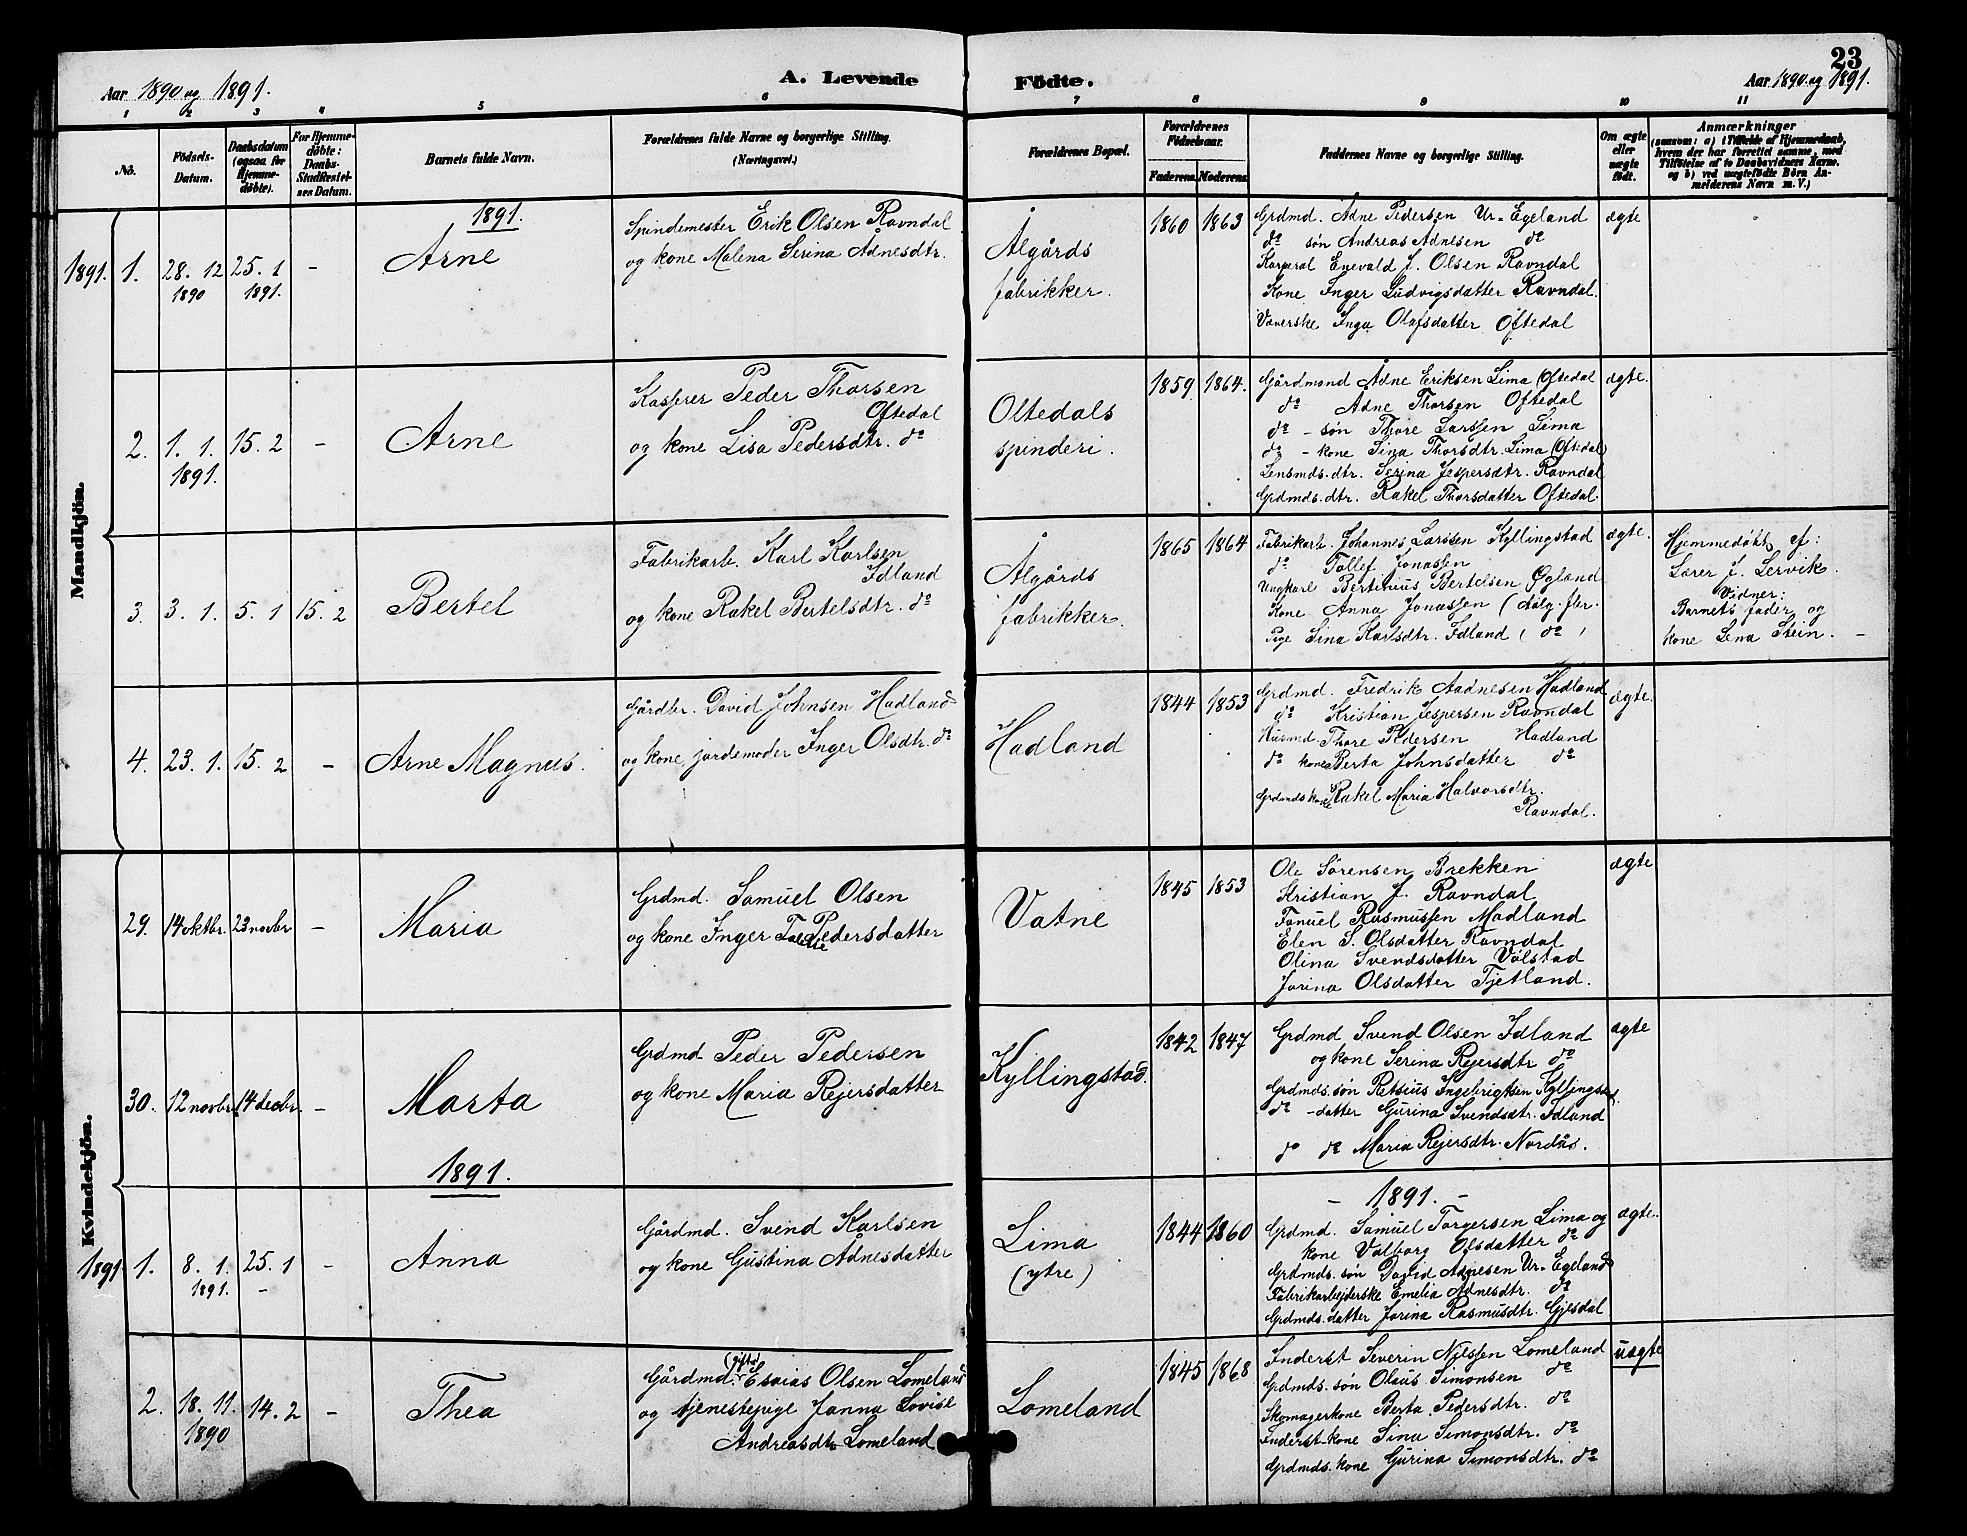 23
Aar 1890 og 1891.
A. Levende Födte.
Aar 1890 og 1891.
1 2 3 4 5 6 7 8 9 10 11
No.
Födsels-Datum.
Daabsdatum (ogsaa for Hjemme-døbte).
For Hjemme-døbte: Daabs-Stadfæstel-ses Datum.
Barnets fulde Navn.
Forældrenes fulde Navne og borgerlige Stilling. (Næringsvei.)
Forældrenes Bopæl.
Forældrenes Födselsaar.
Faderens. Moderens.
Faddernes Navne og borgerlige Stilling.
Om ægte eller uægte født.
Anmærkninger
(saasom: a) i Tilfælde af Hjemmedaab, hvem der har forrettet samme, med Tilföielse af to Daabsvidners Navne, og b) ved uægtefödte Börn An-melderens Navn m. V.)
Mandkjön.
1891.
1891. 1. 28. 12 1890
25. 1 1891.
-
Arne
Spindemester Erik Olsen Ravndal
og kone Malena Serina Adnesdtr.
Ålgårds
fabrikker.
1860 1863
Grdmd. Adne Pedersen Ur-Egeland
do søn Andreas Adnesen do
Korporal Enevald J. Olsen Ravndal
Kone Inger Ludvigsdatter Ravndal.
Væverske Inga Olafsdatter Oftedal
ægte
2. 1. 1. 1891.
15. 2
-
Arne
Kasserer Peder Thorsen
Oftedal
og kone Lisa Pedersdtr. do
Oltedals
spinderi.
1859 1864.
Gårdmand Adne Eriksen Lima (Oftedal
do Adne Thorsen Oftedal
do - søn Thore Larssen Lima
do - kone Sina Thorsdtr. Lima (Oftedal)
Lensmds. dtr. Serina Jespersdtr. Ravndal
Grdmds. dtr. Rakel Thorsdatter Oftedal.
ægte.
3. 3. 1. 5. 1 15. 2
Bertel
Fabrikarb. Karl Karlsen
Idland
og kone Rakel Bertelsdtr. do
Ålgårds
fabrikker.
1865 1864
Fabrikarb. Johannes Larssen Kyllingstad
do Tollef Jonassen
Ungkarl Bertinius Bertelsen Øgland
Kone Anna Jonassen (Aalg. fbr.
Pige Sina Karlsdtr. Idland ( do )
ægte.
Hjemmedøbt af:
Lærer J. Lervik.
Vidner:
Barnets fader og
kone Lena Stein. -
4. 23. 1. 15. 2 -
Arne Magnus.
Gårdbr. David Johnsen Hadland
og kone, jordemoder Inger Olsdtr. do
Hadland
1844 1853
Grdmd. Fredrik Aadnesen Hadland
do Kristian Jespersen Ravndal
Husmd. Thore Pedersen Hadland
do kone Berta Johnsdatter do
Grdmds kone Rakel Maria Halvorsdtr.
Ravndal.
ægte.
Kvindekjön.
29. 14 oktbr. 23 novbr -
Maria
Grdmd. Samuel Olsen
og kone Inger Pedersdatter
Vatne
1845 1853
Ole Sørensen Brekken
Kristian J. Ravndal
Fanuel Rasmussen Madland
Elen S. Olsdatter Ravndal
Olina Svendsdatter Vølstad
Jorina Olsdatter Tjetland.
ægte
30. 12 novbr. 14 decbr. -
Marta
Grdmd. Peder Pedersen
og kone Maria Rejersdatter
Kyllingstad.
1842 1847
Grdmd Svend Olsen Idland
og kone Serina Rejersdtr do
Grdmds. søn Retsius Ingebrigtsen Kyllingstad.
do - datter Gurina Svendsdtr. Idland
do do Maria Rejersdtr. Nordås.
ægte
1891.
- 1891. -
1891 1. 8. 1. 1891.
25. 1 -
-
Anna
Gårdmd. Svend Karlsen
og kone Gustina Ådnesdatter
Lima
(ytre)
1844 1860
Grdmd. Samuel Torgersen Lima og
kone Valborg Olsdatter do
Grdmds. søn David Adnesen Ur-Egeland
Fabrikarbejderske Emelia Adnesdtr. do
Grdmds. datter Jorina Rasmusdtr. Gjesdal
ægte.
2. 18. 11. 1890
14. 2
-
Thea
(gift)
Gårdmd. Esaias Olsen Lomeland
og tjenestepige Janna Lovise
Andreasdtr Lomeland
Lomeland
1845 1868
Inderst Severin Nilssen Lomeland
Grdmds. søn Olaus Simonsen do
Skomagerkone Berta Pedersdtr. do
Inderst-kone Sina Simonsdtr. do
Grdmds. kone Gurina Simonsdtr. do
uægte